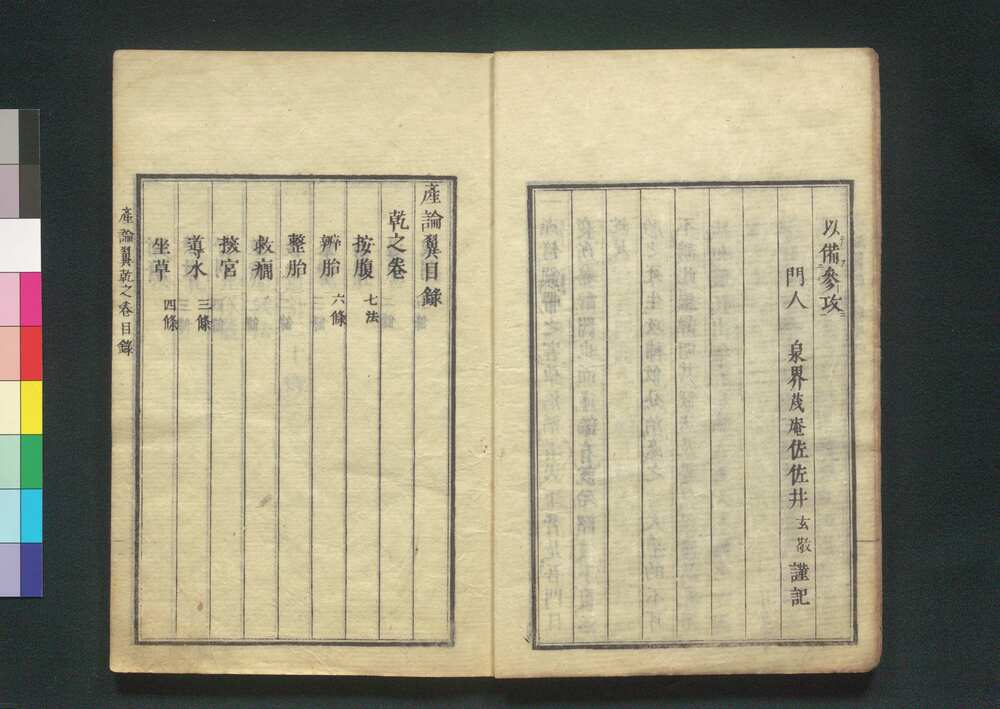 以備參攷
門人 泉界茂庵佐佐井玄敬謹記
產論翼目錄
乾之卷
按腹 七法
辨胎 六條
整胎
救癇
採宮
導水 三條
坐草 四條
產論翼乾之卷目錄